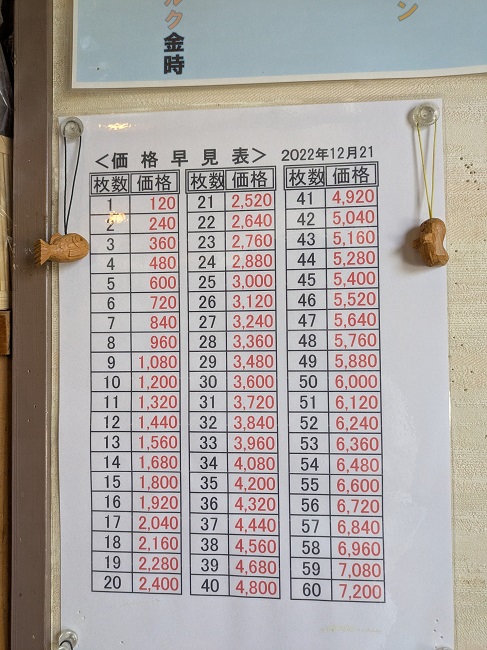 ン
ルク金時
<価格早見表> 2022年12月21
枚数 価格 枚数 価格 枚数 価格
1 120 21 2,520 41 4,920
2 240 22 2,640 42 5,040
3 360 23 2,760 43 5,160
4 480 24 2,880 44 5,280
5 600 25 3,000 45 5,400
6 720 26 3,120 46 5,520
7 840 27 3,240 47 5,640
8 960 28 3,360 48 5,760
9 1,080 29 3,480 49 5,880
10 1,200 30 3,600 50 6,000
11 1,320 31 3,720 51 6,120
12 1,440 32 3,840 52 6,240
13 1,560 33 3,960 53 6,360
14 1,680 34 4,080 54 6,480
15 1,800 35 4,200 55 6,600
16 1,920 36 4,320 56 6,720
17 2,040 37 4,440 57 6,840
18 2,160 38 4,560 58 6,960
19 2,280 39 4,680 59 7,080
20 2,400 40 4,800 60 7,200